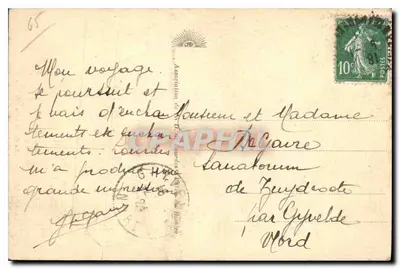 65
Mon voyage
se poursuit et
je vais d'enchan
tements en enchan
tements. Lourdes
m'a produit une
grande impression
Monsieur et Madame
Sanatorium
de Zuydcoote
par Ghyvelde
Nord
10c
POSTES
CPAPHIL